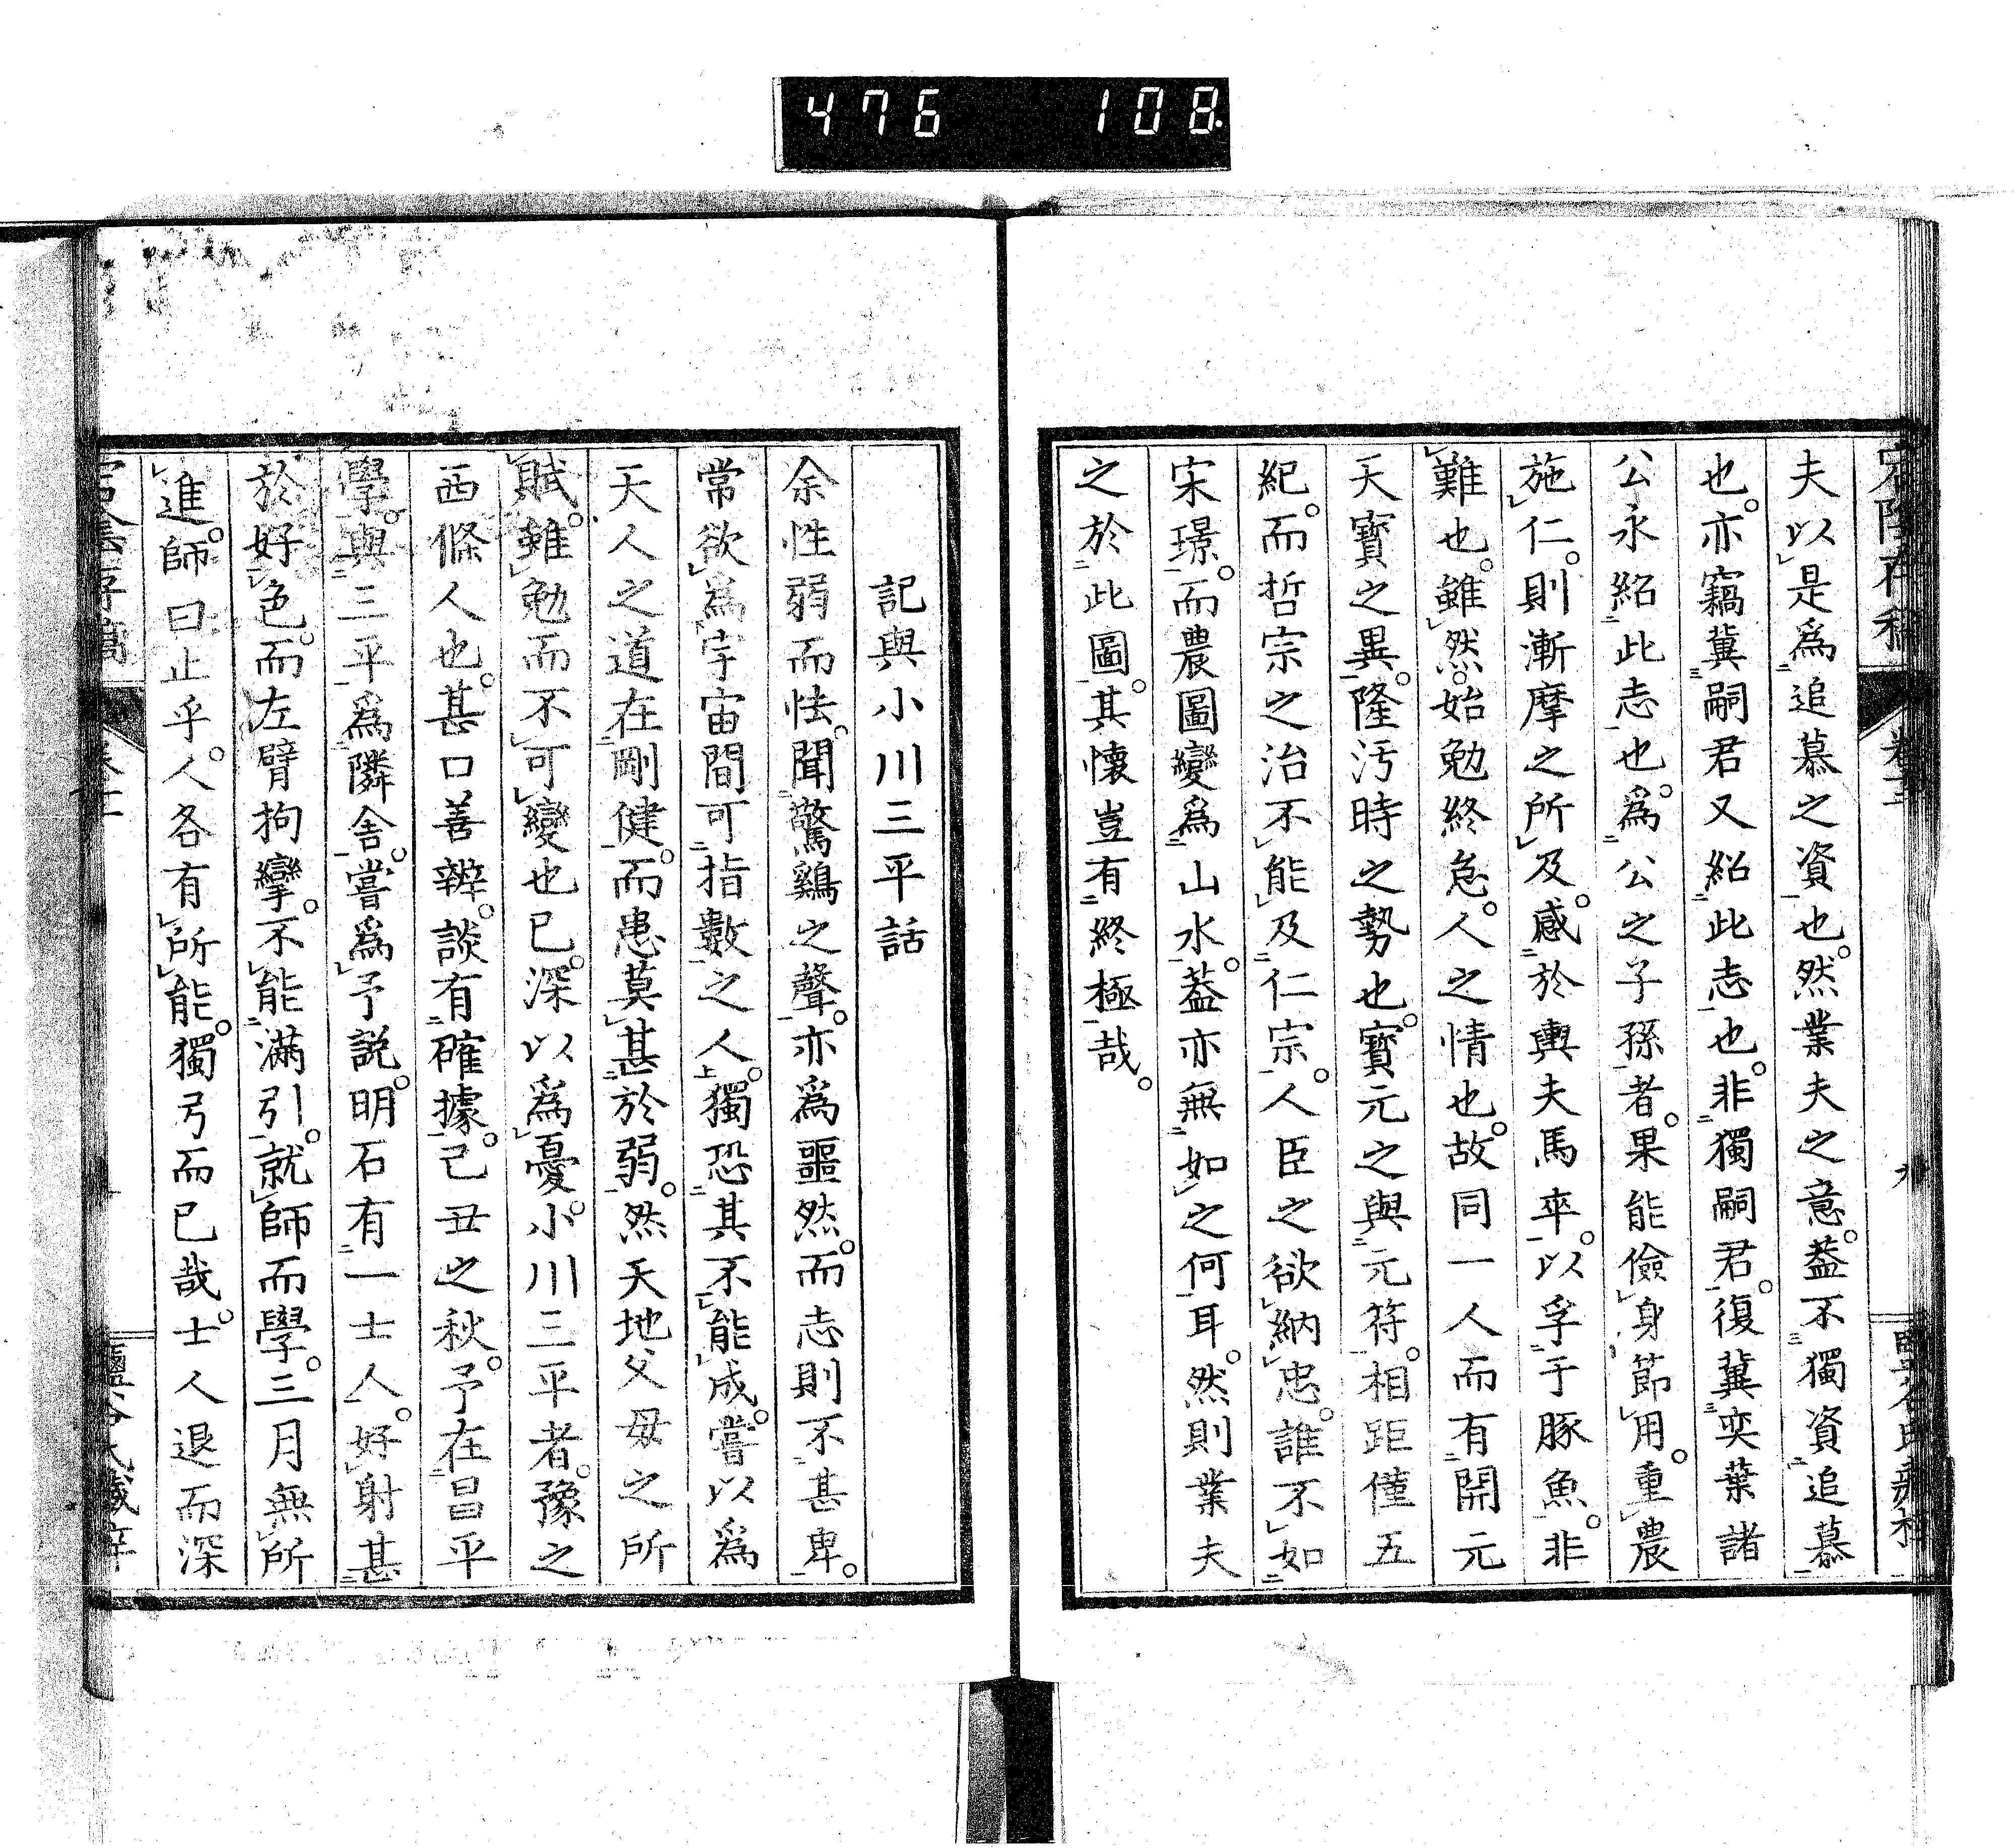 476 108
夫以是爲追慕之資也。然業夫之意。葢不獨資追慕
也。亦竊冀嗣君又紹此志也。非獨嗣君。復冀奕葉諸
公永紹此志也。爲公之子孫者。果能儉身節用。重農
施仁。則漸摩之所及。感於輿夫馬卒。以孚于豚魚。非
難也。雖然。始勉終怠。人之情也。故同一人而有開元
天寶之異。隆汚時之勢也。寶元之與元符。相距僅五
紀。而哲宗之治不能及仁宗。人臣之欲納忠。誰不如
宋璟。而農圖變爲山水。葢亦無如之何耳。然則業夫
之於此圖。其懷豈有終極哉。
記與小川三平話
余性弱而怯。聞驚鷄之聲。亦爲噩然。而志則不甚卑。
常欲爲宇宙間可指數之人。獨恐其不能成。嘗以爲
天人之道在剛健。而患莫甚於弱。然天地父母之所
賦。雖勉而不可變也已。深以爲憂。小川三平者。豫之
西條人也。甚口善辨。談有確據。己丑之秋。予在昌平
學。與三平爲隣舍。嘗爲予説。明石有一士人。好射甚
於好色。而左臂拘攣。不能滿引。就師而學。三月無所
進。師曰止乎。人各有所能。獨弓而已哉。士人退而深